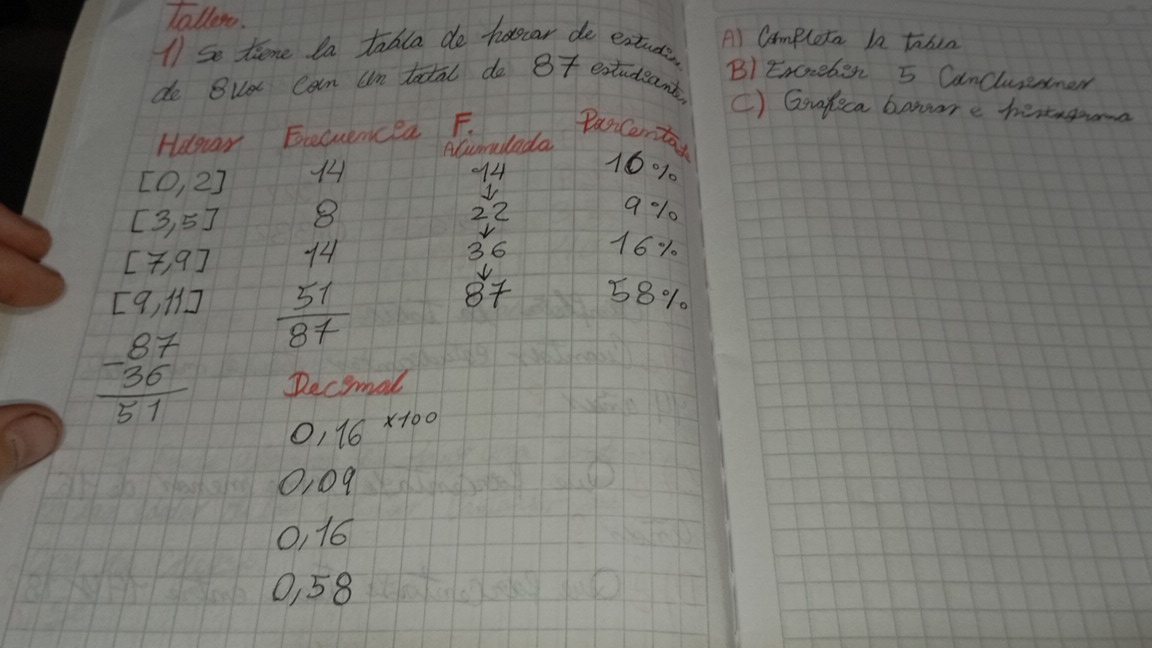 Taller.
1) Se tiene la tabla de horas de estudio
de 8vos con un total de 87 estudiantes
Horas Frecuencia F. Acumulada Porcentaje
[0,2] 14 14 16%
[3,5] 8 22 9%
[7,9] 14 36 16%
[9,11] 51 87 58%
87
87
-36
51
Decimal
0,16 x100
0,09
0,16
0,58
A) Completa la tabla
B) Escribir 5 Conclusiones
C) Grafica barras e histograma